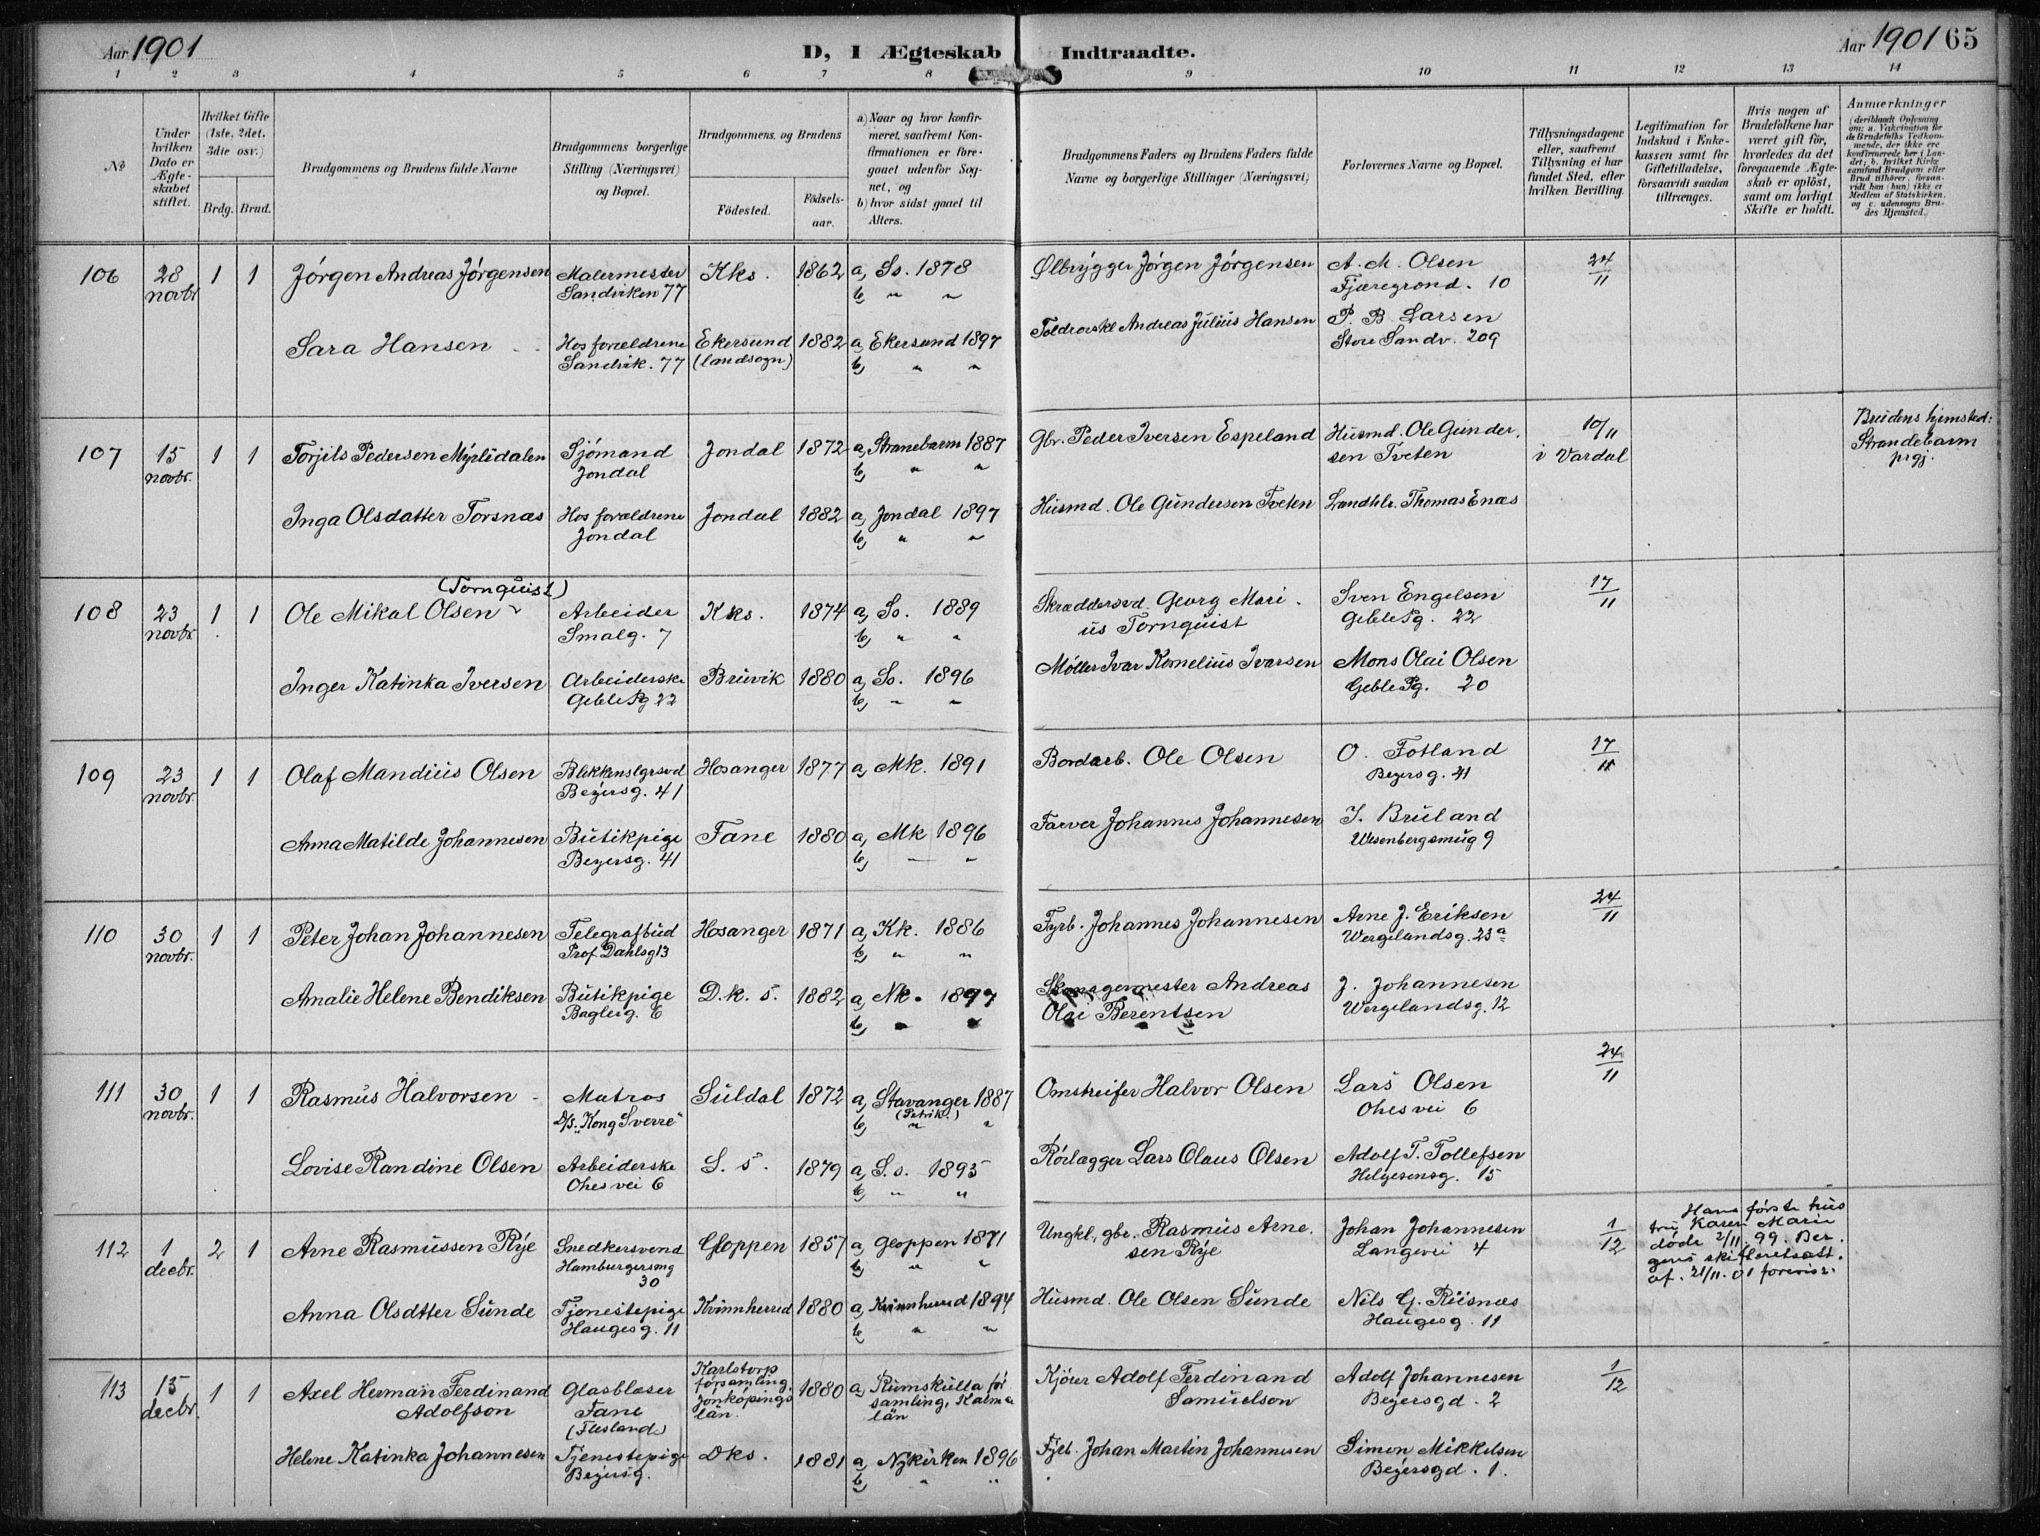 Aar 1901
D, I Ægteskab Indtraadte.
Aar 1901 65
1 2 3 4 5 6 7 8 9 10 11 12 13 14
No
Under hvilken Dato er Ægteskabet stiftet.
Hvilket Gifte (1ste, 2det, 3die osv.)
Brdg. Brud.
Brudgommens og Brudens fulde Navne
Brudgommens borgerlige Stilling (Næringsvei) og Bopæl.
Brudgommens, og Brudens
Födested. Födselsaar.
a) Naar og hvor konfirmeret, saafremt Konfirmationen er foregaaet udenfor Sognet, og
b) hvor sidst gaaet til Alters.
Brudgommens Faders og Brudens Faders fulde Navne og borgerlige Stillinger (Næringsvei)
Forlovernes Navne og Bopæl.
Tillysningsdagene eller, saafremt Tillysning ei har fundet Sted, efter hvilken Bevilling.
Legitimation for Indskud i Enkekassen samt for Giftetilladelse, forsaavidt saadan tiltrænges.
Hvis nogen af Brudefolkene har været gift før, hvorledes da det foregaaende Ægteskab er oplöst, samt om lovligt Skifte er holdt.
Anmærkninger
(deriblandt Oplysning om: a. Vakcination for de Brudefolks Vedkommende, der ikke ere konfirmerede her i Landet; b. hvilket Kirkesamfund Brudgom eller Brud tilhörer, forsaavidt han (hun) ikke er Medlem af Statskirken, og c. udensogns Brudes Hjemsted.)
106 28 novbr 1 1 Jørgen Andreas Jørgensen Malermester Sandviken 77 Kks. 1862 a, Ss. 1878 b, " " Ølbrygger Jørgen Jørgensen A. M. Olsen Fjæregrønd. 10 24/11
Sara Hansen Hos forældrene Sandvik. 77 Ekersund (landsogn) 1882 a, Ekersund 1897 b, " " Andreas Julius Hansen P. B. Larsen Store Sandv. 209
107 15 novbr. 1 1 Torjils Pedersen Myrlidalen Sjømand Jondal Jondal 1872 a, Stranebarm 1887 b, " " Gbr. Peder Iversen Espeland Husmd. Ole Gundersen Tveten 10/11 i Vardal Brudens hjemsted: Strandebarm prgj.
Inga Olsdatter Torsnæs Hos forældrene Jondal Jondal 1882 a, Jondal 1897 b, " " Husmd. Ole Gundersen Tveten Landhlr. Thomas Enæs
108 23 novbr. 1 1 Ole Mikal Olsen (Tornquist) Arbeider Smalg. 7 Kks. 1874 a, Ss. 1889 b, " " Skræddersvd. Georg Marius Tornquist Sven Engelsen Geble Pg. 22 17/11
Inger Katinka Iversen Arbeiderske Geble Pg 22 Bruvik 1880 a, Ss. 1896 b, " " Møller Ivar Kornelius Ivarsen Mons Olai Olsen Geble Pg. 20
109 23 novbr. 1 1 Olaf Mandius Olsen Blikkenslgrsvd Beyersg. 41 Hosanger 1877 a, Mk. 1891 Bordarb. Ole Olsen O. Fotland Beyersg. 41 17/11
Anna Matilde Johannesen Butikpige Beyersg. 41 Fane 1880 a, Mk 1896 b, — " Farver Johannes Johannesen I. Bruland Wesenbergsmug 9
110 30 novbr. 1 1 Peter Johan Johannesen Telegrafbud Prof Dahlsg 13 Hosanger 1871 a, Kk. 1886 b, " " Fyrb. Johannes Johannesen Arne J. Eriksen Wergelandsg. 23a 24/11
Amalie Helene Bendiksen Butikpige Baglerg. 6 D.k.s. 1882 a, Nk. 1897 b, " " Andreas Olai Berentsen J. Johannesen Wergelandsg. 12
111 30 novbr. 1 1 Rasmus Halvorsen Matros D/s. "Kong Sverre" Suldal 1872 a, Stavanger 1887 (Petrik.) b, " " Omstreifer Halvor Olsen Lars Olsen Ohesvei 6 24/11
Lovise Randine Olsen Arbeiderske Ohesvei 6 S. s. 1879 a, S.s. 1895 b, " " Rørlægger Lars Claus Olsen Adolf T. Tollefsen Helgesensg. 15
112 1 decbr. 2 1 Arne Rasmussen Rye Snedkersvend Hamburgersmg 30 Gloppen 1857 a, Gloppen 1871 b, " " Ungkl., gbr. Rasmus Arnesen Rye Johan Johannesen Langevei 4 1/12 Hans første hustru Karen Marie døde 2/11.99. Bergens skifteretsatt. af. 21/11.01 forevist.
Anna Olsdtter Sunde Tjenestepige Haugesg. 11 Kvinnherred 1880 a, Kvinnherred 1894 b, " " Husmd. Ole Olsen Sunde Nils G. Riisnæs Haugesg. 11
113 15 decbr. 1 1 Axel Herman Ferdinand Adolfson Glasblæser Fane (Flesland) Karlstorp forsamling, Jonköpings län. 1880 a, Rumskulla församling, Kalmar län Kjører Adolf Ferdinand Samuelson Adolf Johannesen Beyersgd. 2 1/12
Helene Katinka Johannesen Tjenestepige Beyersg. Dks. 1881 a, Nykirken 1896 b, " " Fyrb. Johan Martin Johannesen Simon Mikkelsen Beyersgd. 1.